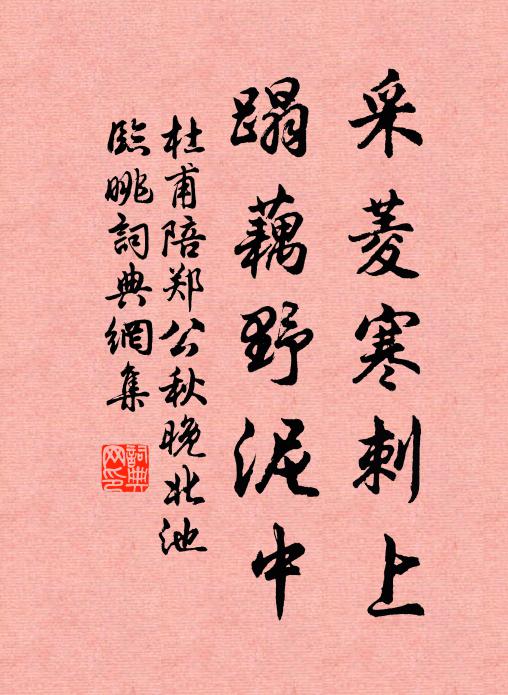 采菱寒刺上
蹋藕野泥中
杜甫陪郑公秋晚北池
臨眺詞典網集
詞典
网印